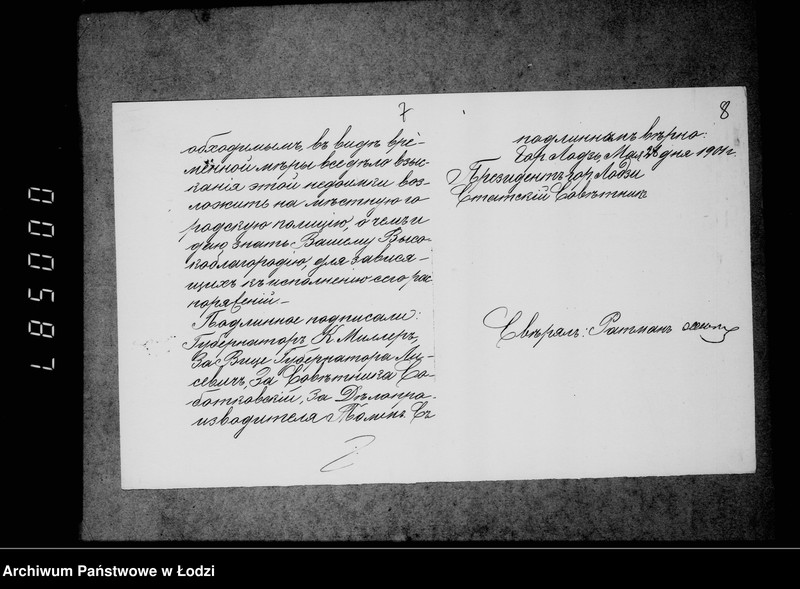 7
обходимымъ, въ видѣ вре-
менной мѣры все дѣло взыс-
канія этой недоимки воз-
ложить на мѣстную го
родскую полицію, о чемъ и
даю знать Вашему Высо-
коблагородію, для завися-
щихъ къ исполненію сего рас
поряженій —
Подлинное подписали:
Губернаторъ К Миллеръ,
За Вице Губернатора Ли-
севичъ, За Совѣтника Со-
ботковскій, За Дѣлопро-
изводителя Съ
8
подлиннымъ вѣрно:
Гор Лодзь, Мая дня 1901 г.
Президентъ гор. Лодзи
Статскій Совѣтникъ
Свѣрялъ: Ратманъ
000587
Archiwum Państwowe w Łodzi